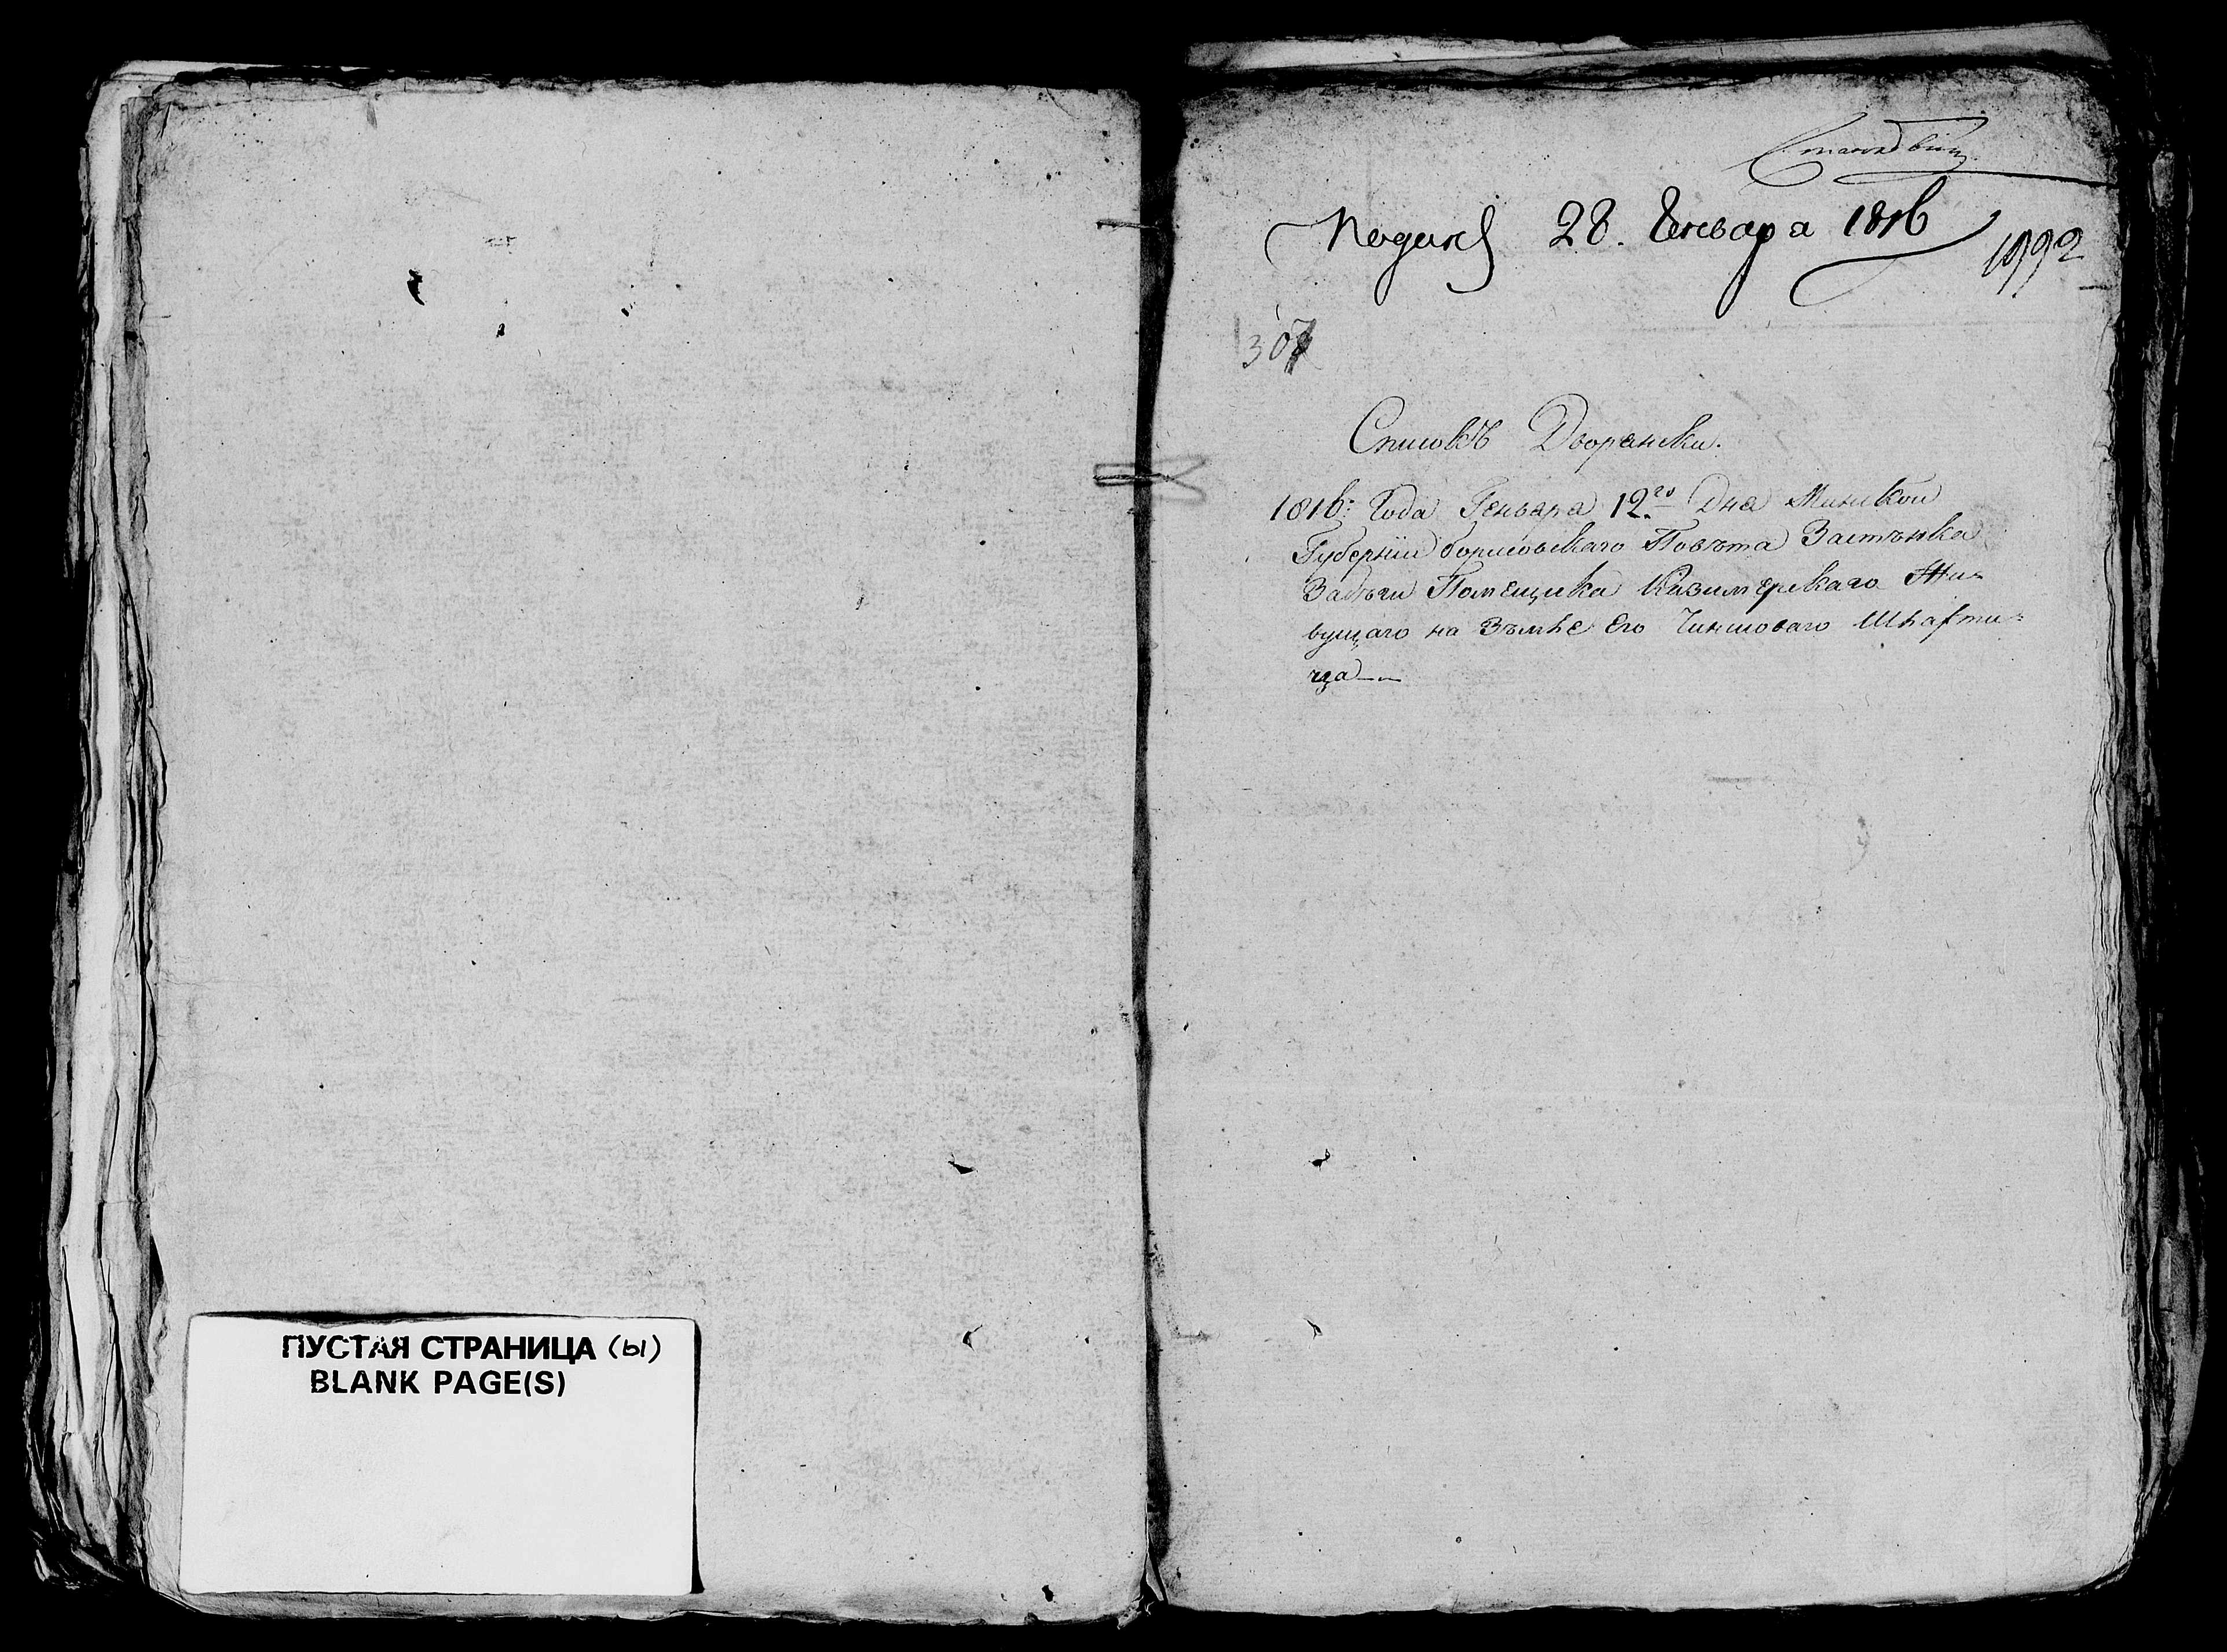 ПУСТАЯ СТРАНИЦА (ы)
BLANK PAGE(S)
28. Генваря 1816
1992
307
Списокъ Дворански.
1816: Года Генвара 12го Дна Минской
Губерніи борисовскаго Повѣта Застѣнка
Помещика Казимерскаго Жи-
вущаго на Зѣмле Его Чиншоваго Шляхти-
ца